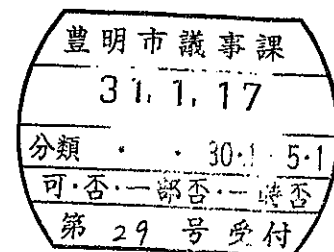 豊明市議事課
31. 1. 17
分類 ・ ・ 30・1 5・1
可・否・一部否・一時否
第 29 号 受付